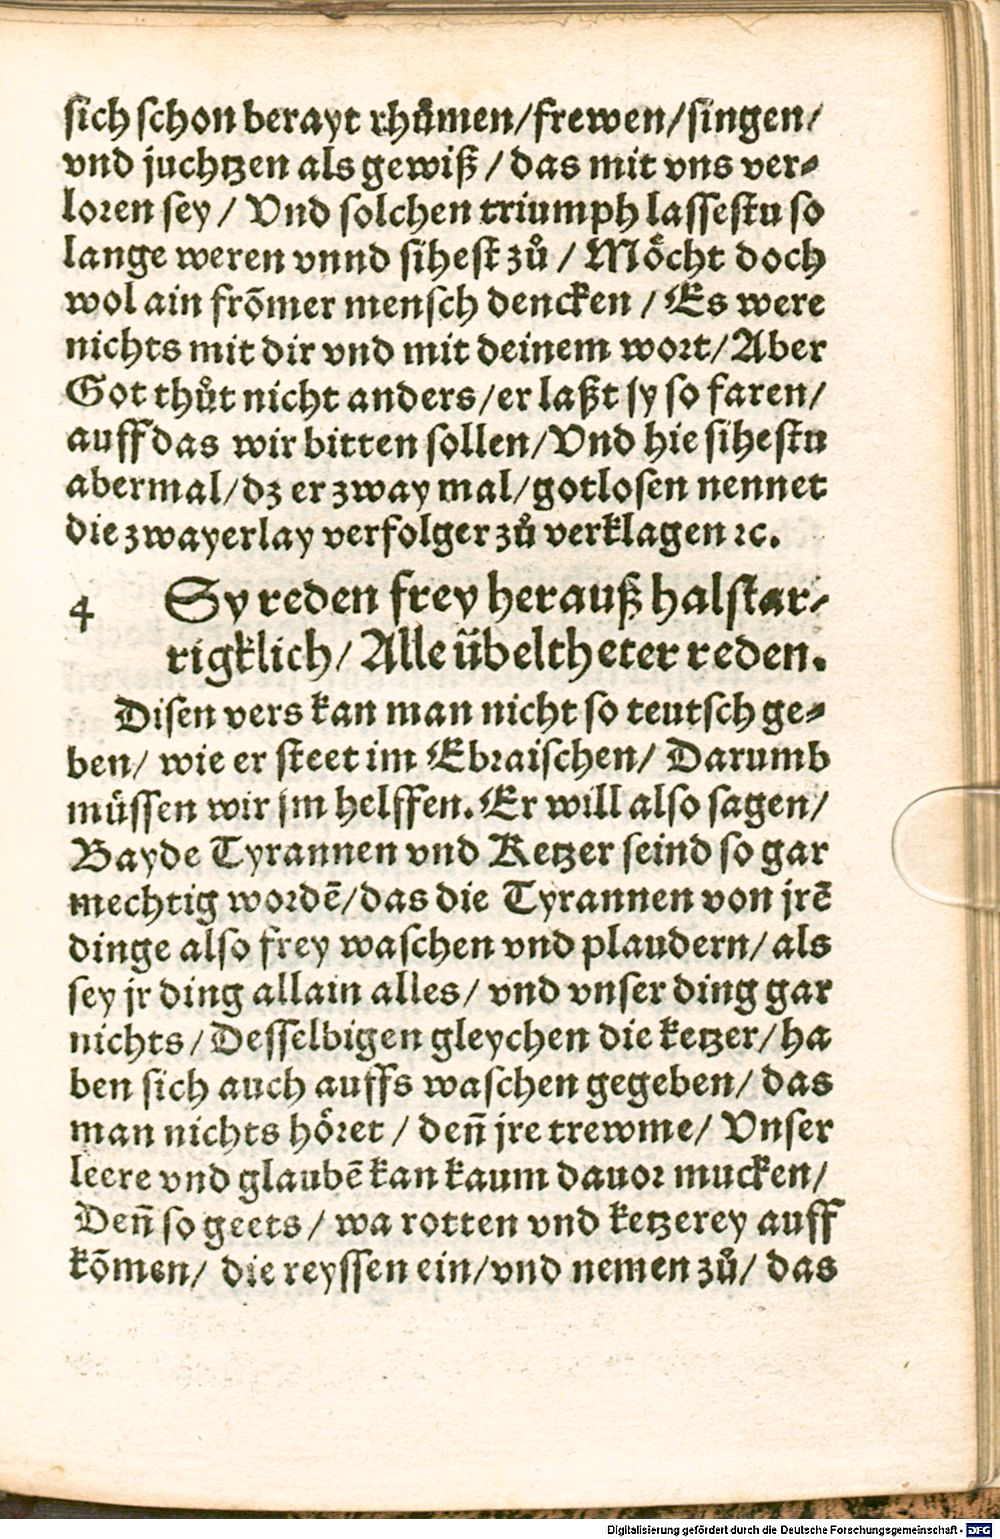 sich schon berayt rhůmen/frewen/singen/
vnd juchtzen als gewiß/das mit vns ver-
loren sey/ Vnd solchen triumph lassestu so
lange weren vnnd sihest zů/ Möcht doch
wol ain frõmer mensch dencken/ Es were
nichts mit dir vnd mit deinem wort/Aber
Got thůt nicht anders/er laßt sy so faren/
auff das wir bitten sollen/Vnd hie sihestu
abermal/dz er zway mal/gotlosen nennet
die zwayerlay verfolger zů verklagen ꝛc.
4 Sy reden frey herauß halstar-
rigklich/ Alle übeltheter reden.
Disen vers kan man nicht so teutsch ge-
ben/ wie er steet im Ebraischen/ Darumb
müssen wir jm helffen. Er will also sagen/
Bayde Tyrannen vnd Ketzer seind so gar
mechtig wordẽ/das die Tyrannen von jrẽ
dinge also frey waschen vnd plaudern/als
sey jr ding allain alles/ vnd vnser ding gar
nichts/Desselbigen gleychen die ketzer/ha
ben sich auch auffs waschen gegeben/ das
man nichts höret/ deñ jre trewme/ Vnser
leere vnd glaubẽ kan kaum dauor mucken/
Deñ so geets/ wa rotten vnd ketzerey auff
kõmen/ die reyssen ein/vnd nemen zů/ das
Digitalisierung gefördert durch die Deutsche Forschungsgemeinschaft - DFG